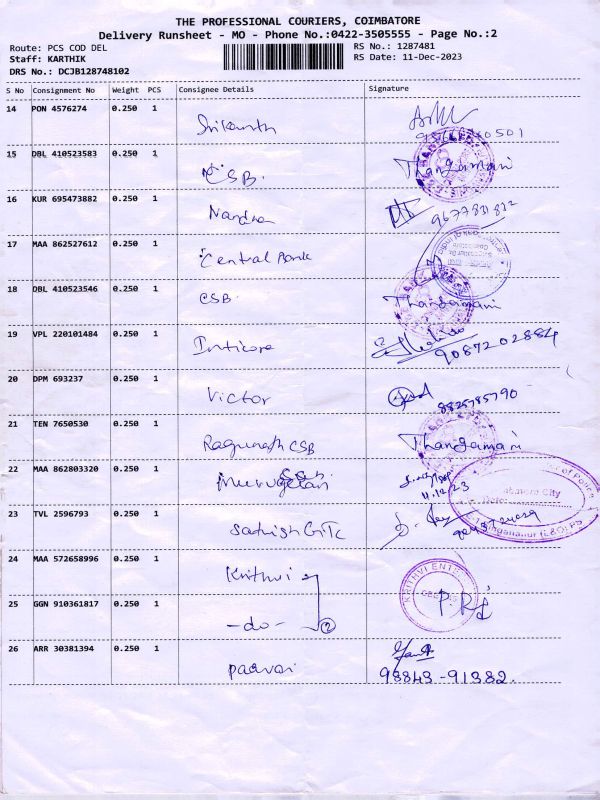 THE PROFESSIONAL COURIERS, COIMBATORE
Delivery Runsheet - MO - Phone No.:0422-3505555 - Page No.:2
Route: PCS COD DEL RS No.: 1287481
Staff: KARTHIK RS Date: 11-Dec-2023
DRS No.: DCJB128748102
S No Consignment No Weight PCS Consignee Details Signature
14 PON 4576274 0.250 1
Srikanth
15 DBL 410523583 0.250 1
CSB. Thangamani
16 KUR 695473882 0.250 1
Nandha
17 MAA 862527612 0.250 1
Central Bank
18 DBL 410523546 0.250 1
CSB Thangamani
19 VPL 220101484 0.250 1
9087202884
20 DPM 693237 0.250 1
Victor 8825785790
21 TEN 7650530 0.250 1
Ragunath CSB Thangamani
22 MAA 862803320 0.250 1
Murugesan
11.12.23
23 TVL 2596793 0.250 1
Sathish GTTC
24 MAA 572658996 0.250 1
Krithvi KRITHVI ENTE
25 GGN 910361817 0.250 1
-do- 2
26 ARR 30381394 0.250 1
Parvai 98843-91382.